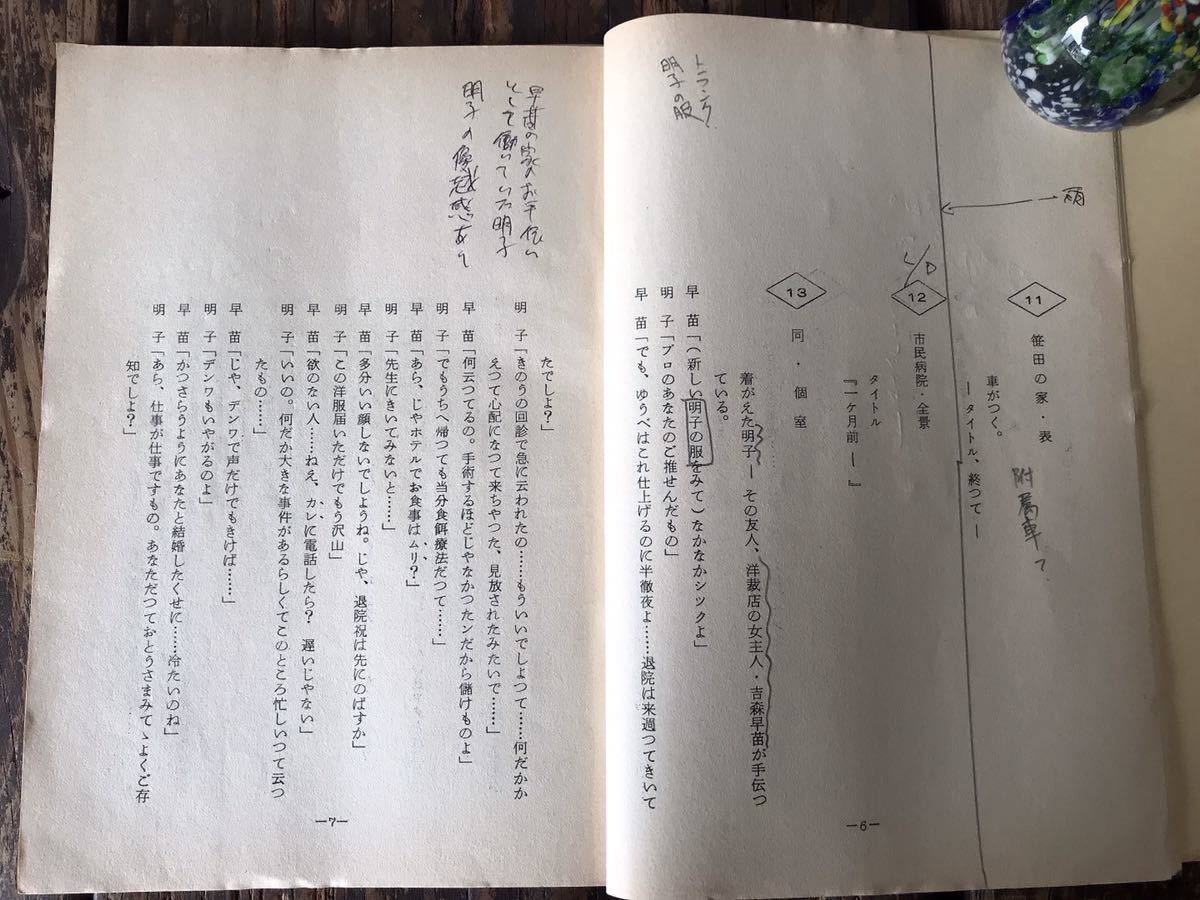 雨
11
笹田の家・表
車がつく。
ータイトル、終つてー
附属車
L/D
12
市民病院・全景
タイトル
『一ケ月前ー』
13
同・個室
着がえた明子ーその友人、洋裁店の女主人・吉森早苗が手伝つ
ている。
早苗「(新しい明子の服をみて)なかなかシックよ」
明子「プロのあなたのご推せんだもの」
早苗「でも、ゆうべはこれ仕上げるのに半徹夜よ……退院は来週つてきいて
トランク
明子の服
ー6ー
たでしよ?」
明子「きのうの回診で急に云われたの……もういいでしよつて……何だかか
えつて心配になつて来ちやつた、見放されたみたいで……」
早苗「何云つてるの。手術するほどじやなかつたンだから儲けものよ」
明子「でもうちへ帰つても当分食餌療法だつて……」
早苗「あら、じやホテルでお食事はムリ?」
明子「先生にきいてみないと……」
早苗「多分いい顔しないでしようね。じや、退院祝は先にのばすか」
明子「この洋服届いただけでもう沢山」
早苗「欲のない人……ねえ、カレに電話したら? 遅いじやない」
明子「いいの。何だか大きな事件があるらしくてこのところ忙しいつて云つ
たもの……」
早苗「じや、デンワで声だけでもきけば……」
明子「デンワもいやがるのよ」
早苗「かつさらうようにあなたと結婚したくせに……冷たいのね」
明子「あら、仕事が仕事ですもの。あなただつておとうさまみてゝよくご存
知でしよ?」
早苗の家のお手伝い
として働いていた明子
明子の優越感あり
ー7ー